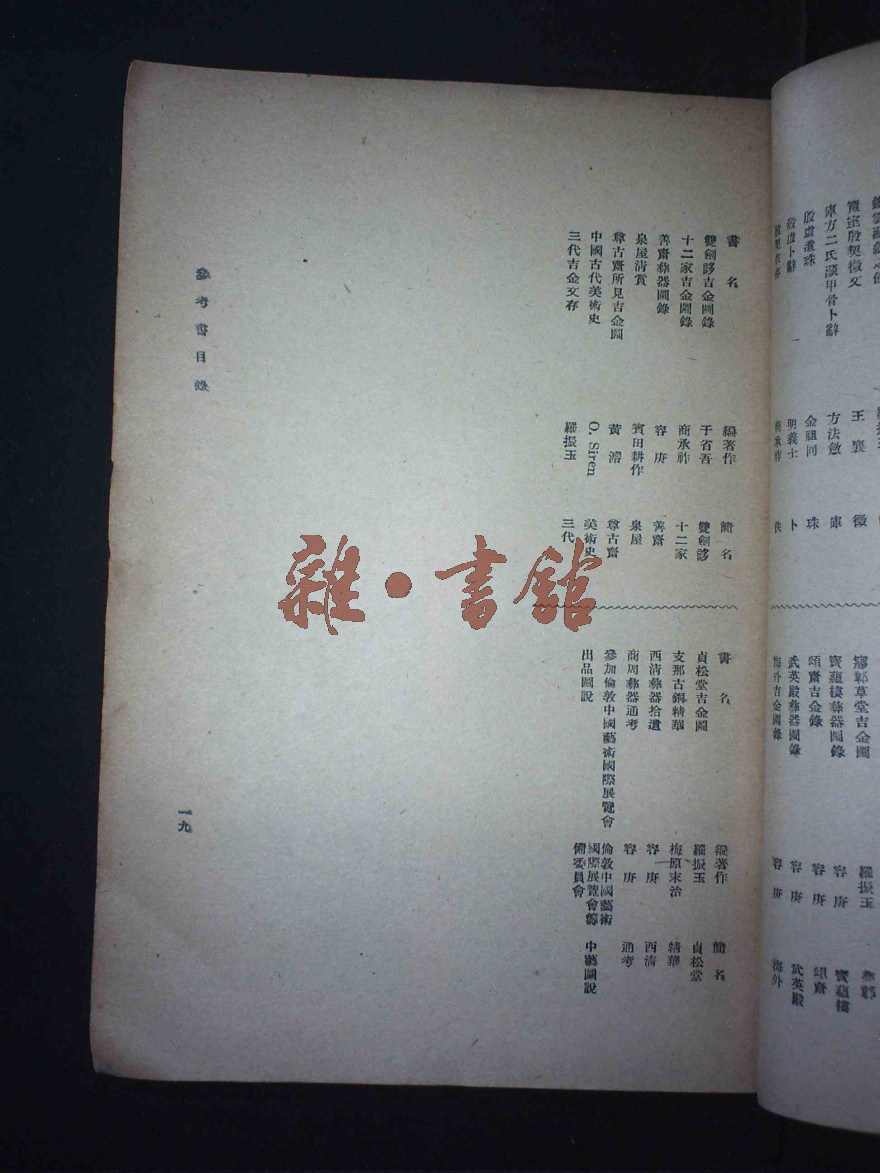 書名 編著作 簡名
雙劍誃吉金圖錄 于省吾 雙劍誃
十二家吉金圖錄 商承祚 十二家
善齋彝器圖錄 容庚 善齋
泉屋清賞 賓田耕作 泉屋
尊古齋所見吉金圖 黃濬 尊古齋
中國古代美術史 O. Siren 美術史
三代吉金文存 羅振玉 三代
書名 編著作 簡名
貞松堂吉金圖 羅振玉 貞松堂
支那古銅精華 梅原末治 精華
西清彝器拾遺 容庚 西清
商周彝器通考 容庚 通考
參加倫敦中國藝術國際展覽會
出品圖說
倫敦中國藝術
國際展覽會籌
備委員會
中藝圖說
參考書目錄
一九
簠室殷契徵文 王襄 徵
庫方二氏藏甲骨卜辭 方法斂 庫
殷虛遺珠 金祖同 珠
殷虛卜辭 明義士 卜
商承祚 佚
寶蘊樓彝器圖錄 容庚 寶蘊樓
頌齋吉金錄 容庚 頌齋
武英殿彝器圖錄 容庚 武英殿
海外吉金圖錄 容庚 海外
草堂吉金圖 羅振玉
雜·書館